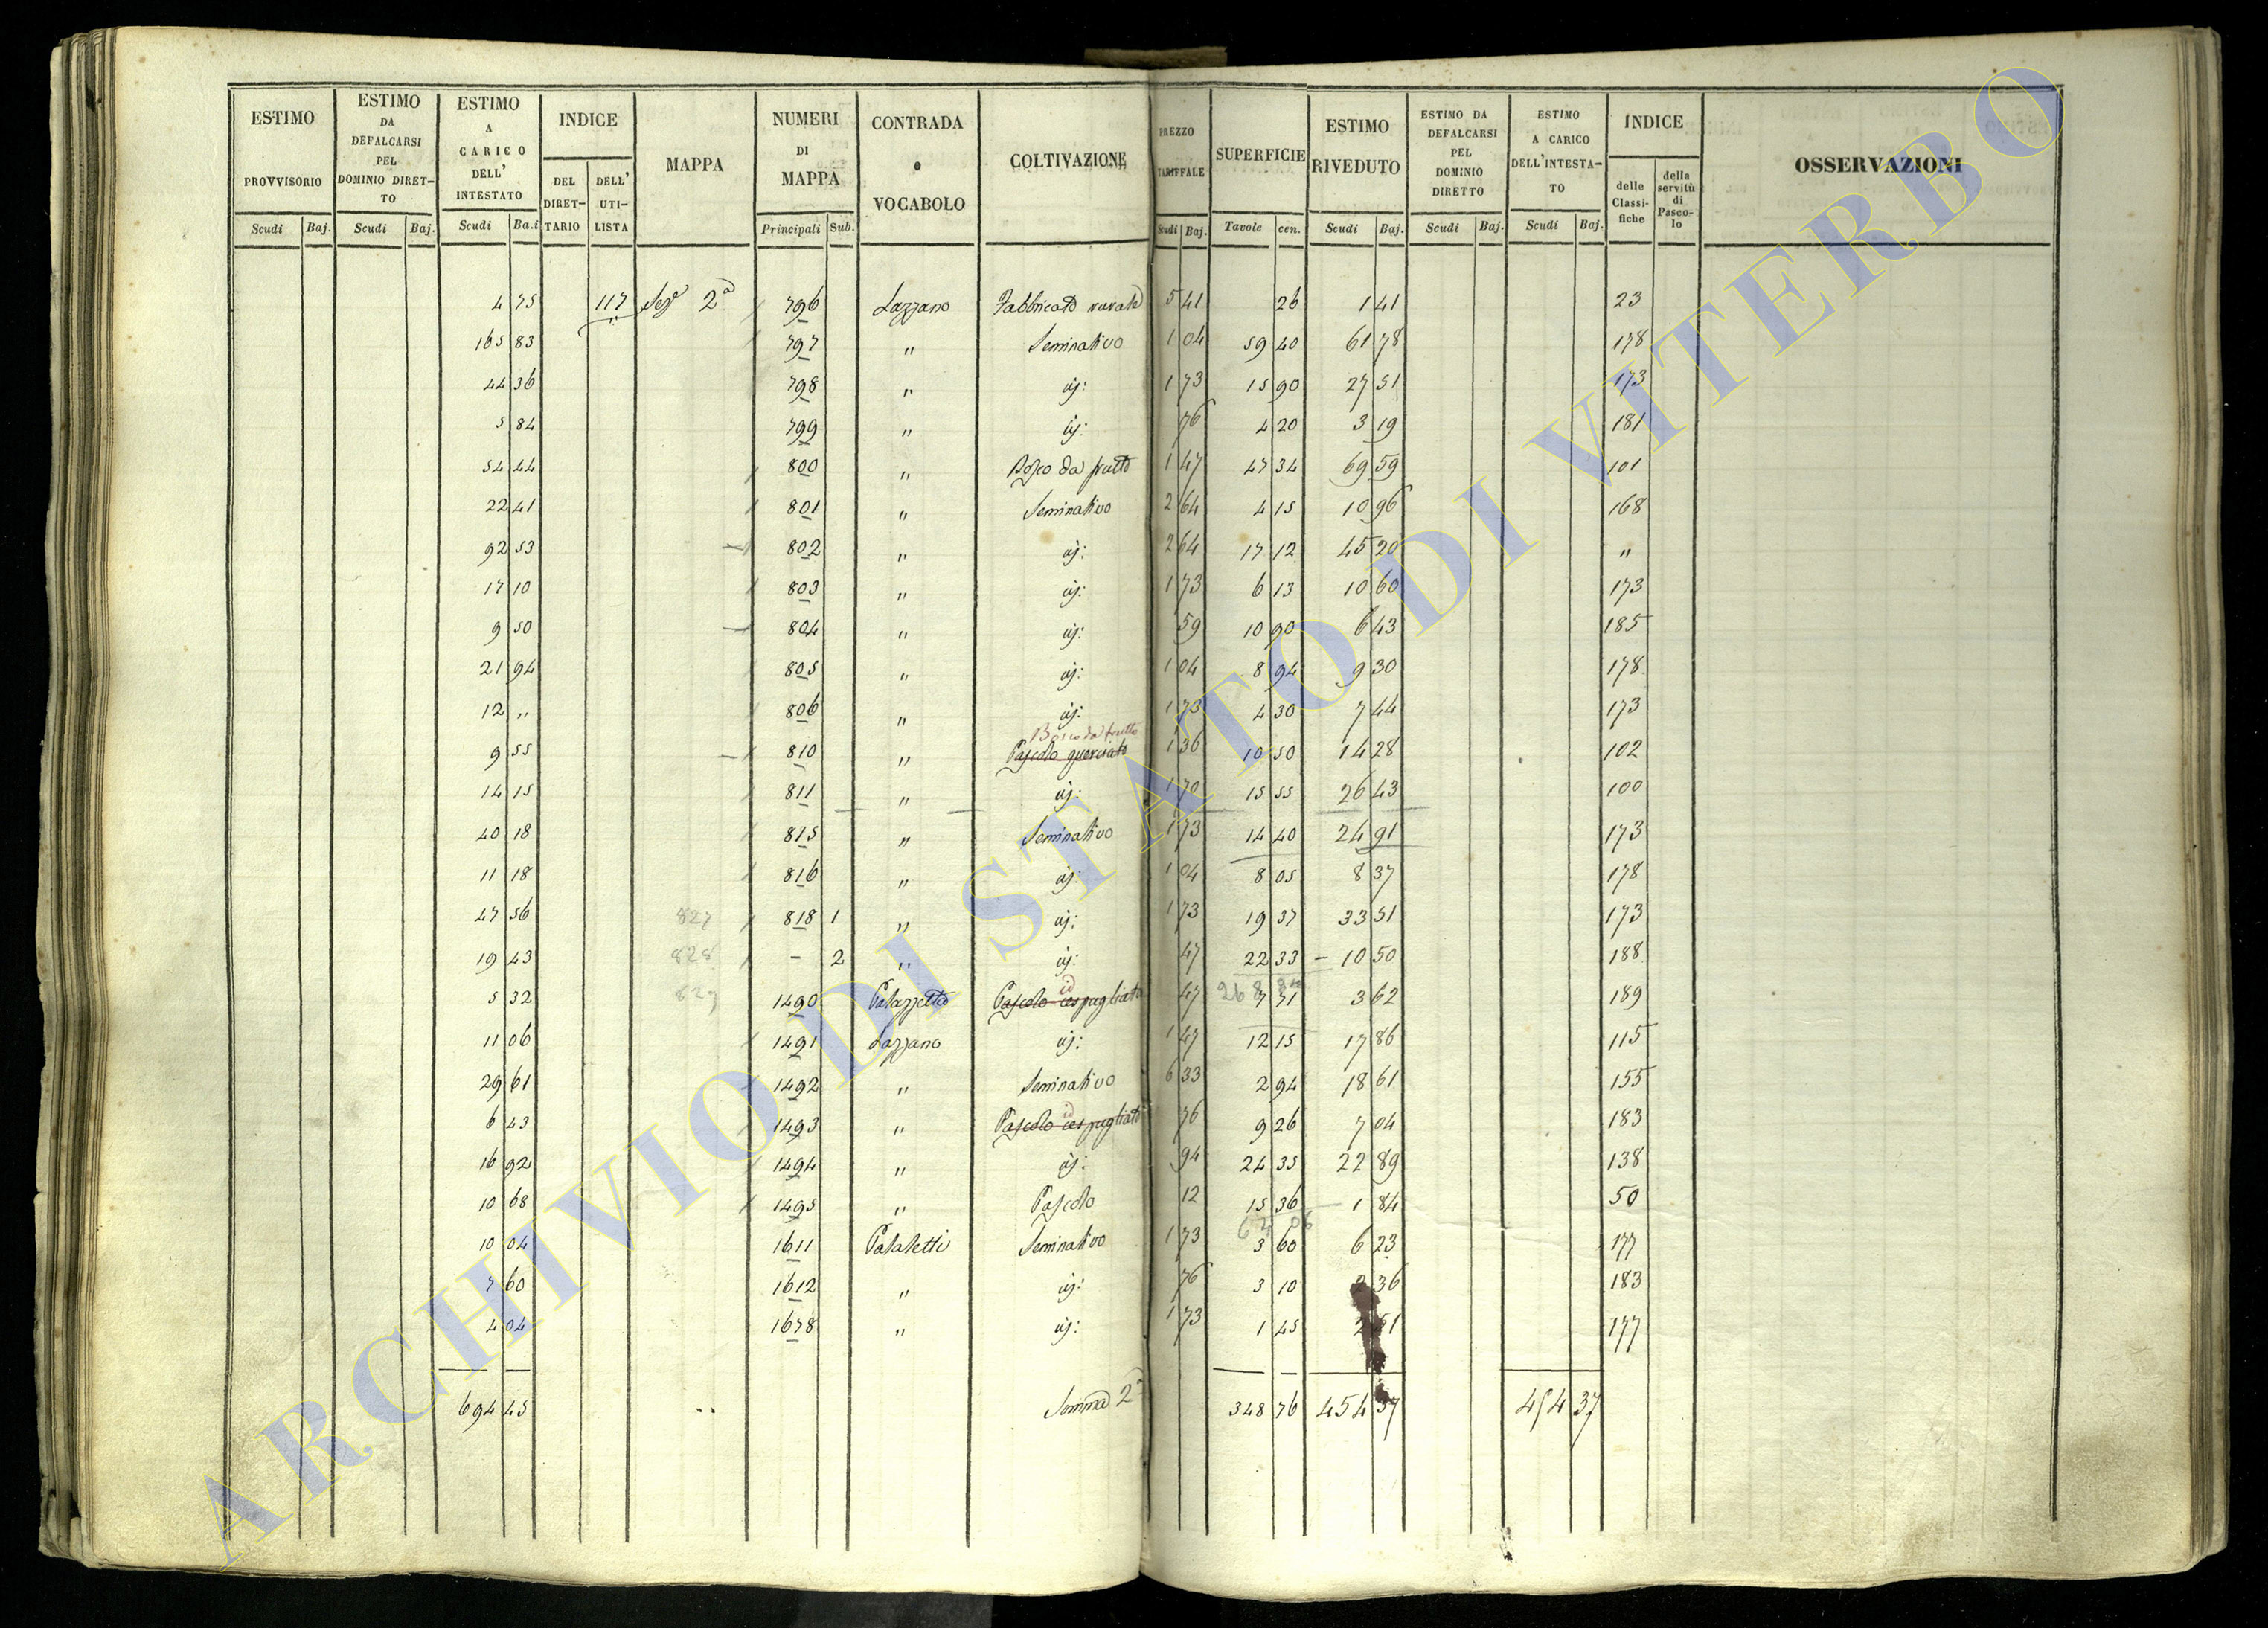 ESTIMO PROVVISORIO | ESTIMO DA DEFALCARSI PEL DOMINIO DIRETTO | ESTIMO A CARICO DELL' INTESTATO | INDICE DEL DIRETTARIO | DELL' UTILISTA | MAPPA | NUMERI DI MAPPA | CONTRADA o VOCABOLO | COLTIVAZIONE | PREZZO TARIFFALE | SUPERFICIE | ESTIMO RIVEDUTO | ESTIMO DA DEFALCARSI PEL DOMINIO DIRETTO | ESTIMO A CARICO DELL'INTESTATO | INDICE delle Classifiche | della servitù di Pascolo | OSSERVAZIONI
Scudi Baj. Scudi Baj. Scudi Ba.i Principali Sub. Scudi Baj. Tavole cen. Scudi Baj. Scudi Baj. Scudi Baj.
4 75 117 Sez.e 2a 796 Lazzano Fabbricato rurale 5 41 26 1 41 23
165 83 797 " Seminativo 1 04 59 40 61 78 178
44 36 798 " id: 1 73 15 90 27 51 173
5 84 799 " id: 76 4 20 3 19 181
54 44 800 " Bosco da frutto 1 47 47 34 69 59 101
22 41 801 " Seminativo 2 64 4 15 10 96 168
92 53 802 " id: 2 64 17 12 45 20 "
17 10 803 " id: 1 73 6 13 10 60 173
9 50 804 " id: 59 10 90 6 43 185
21 94 805 " id: 1 04 8 94 9 30 178
12 " 806 " id: 1 73 4 30 7 44 173
Bosco da frutto
9 55 810 " Pascolo querciato 1 36 10 50 14 28 102
14 15 811 " id: 1 70 15 55 26 43 100
40 18 815 " Seminativo 1 73 14 40 24 91 173
11 18 816 " id: 1 04 8 05 8 37 178
47 56 827 818 1 " id: 1 73 19 37 33 51 173
19 43 828 – 2 " id: 47 22 33 – 10 50 188
id
5 32 829 1490 Palazzetto Pascolo cespugliato 47 7 71 3 62 189
11 06 1491 Lazzano id: 1 47 12 15 17 86 115
29 61 1492 " Seminativo 6 33 2 94 18 61 155
id
6 43 1493 " Pascolo cespugliato 76 9 26 7 04 183
16 92 1494 " id: 94 24 35 22 89 138
10 68 1495 " Pascolo 12 15 36 – 1 84 50
10 04 1611 Palaletti Seminativo 1 73 3 60 6 23 177
7 60 1612 " id: 76 3 10 2 36 183
4 04 1678 " id: 1 73 1 45 2 51 177
694 45 Somma 2a 348 76 454 37 454 37
ARCHIVIO DI STATO DI VITERBO